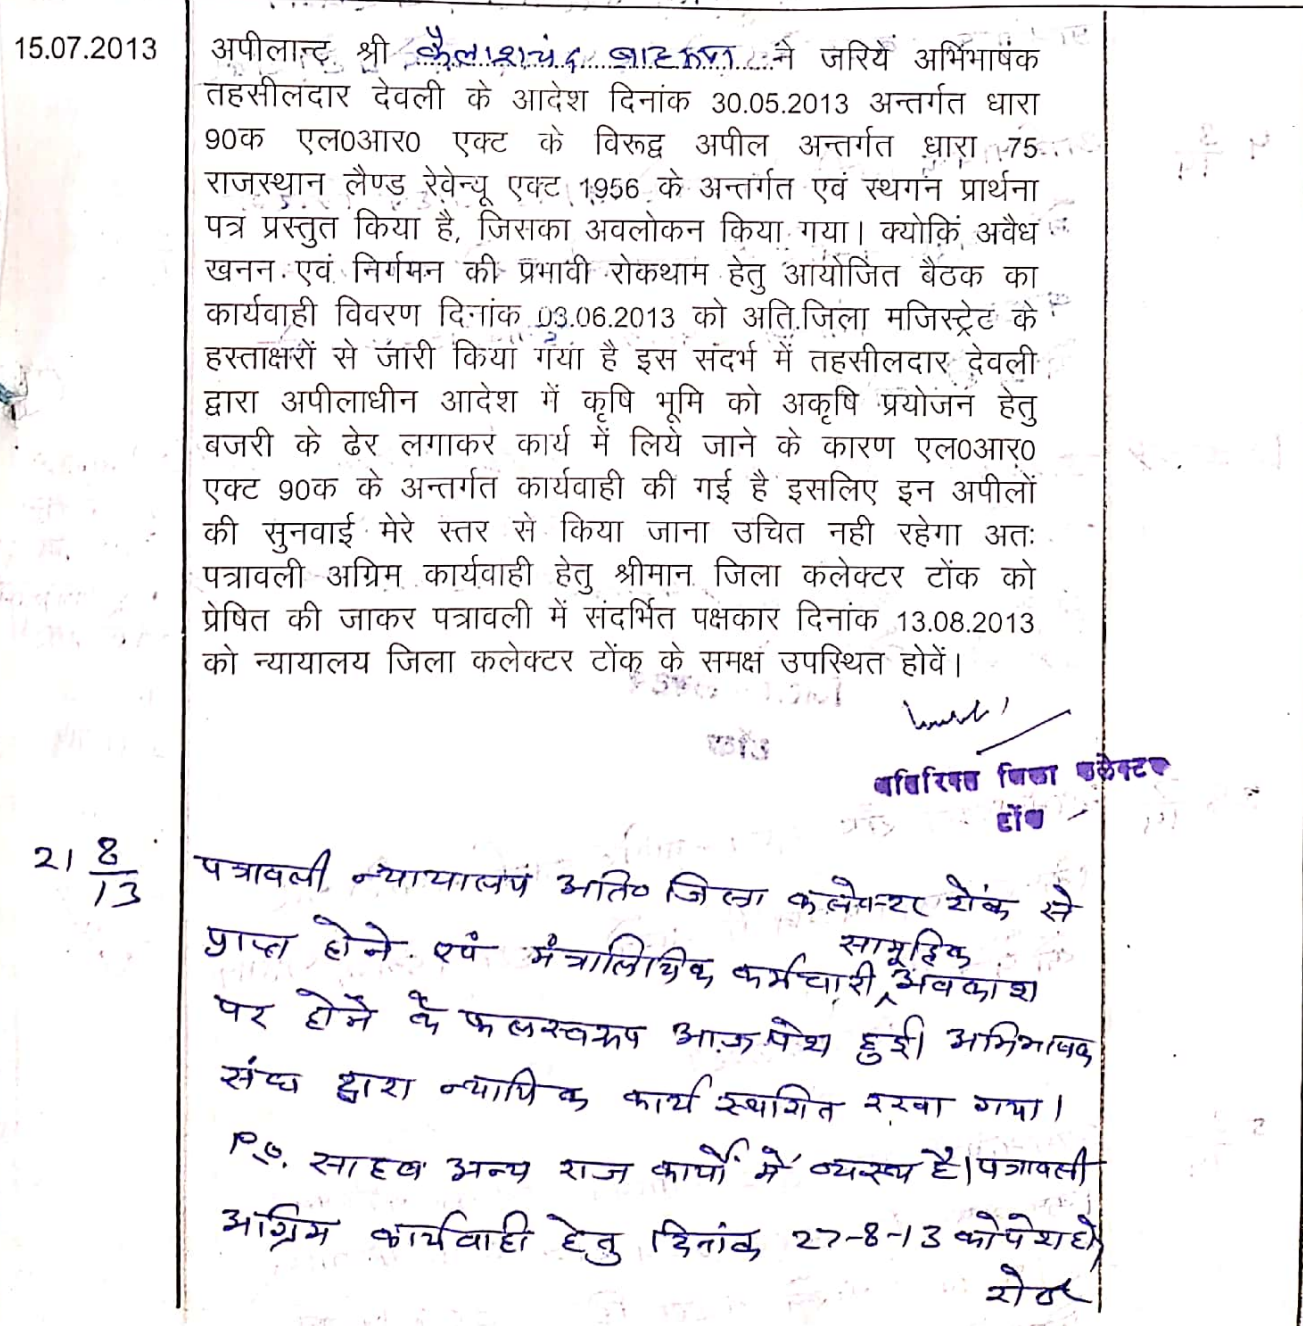 15.07.2013
अपीलान्ट श्री कैलाशचंद ने जरिये अभिभाषंक
तहसीलदार देवली के आदेश दिनांक 30.05.2013 अन्तर्गत धारा
90क एल0आर0 एक्ट के विरूद्व अपील अन्तर्गत धारा 75
राजस्थान लैण्ड रेवेन्यू एक्ट 1956 के अन्तर्गत एवं स्थगन प्रार्थना
पत्र प्रस्तुत किया है, जिसका अवलोकन किया गया। क्योकि अवैध
खनन एवं निर्गमन की प्रभावी रोकथाम हेतु आयोजित बैठक का
कार्यवाही विवरण दिनांक 03.06.2013 को अति.जिला मजिस्ट्रेट के
हस्ताक्षरों से जारी किया गया है इस संदर्भ में तहसीलदार देवली
द्वारा अपीलाधीन आदेश में कृषि भूमि को अकृषि प्रयोजन हेतु
बजरी के ढेर लगाकर कार्य में लिये जाने के कारण एल0आर0
एक्ट 90क के अन्तर्गत कार्यवाही की गई है इसलिए इन अपीलों
की सुनवाई मेरे स्तर से किया जाना उचित नही रहेगा अतः
पत्रावली अग्रिम कार्यवाही हेतु श्रीमान जिला कलेक्टर टोंक को
प्रेषित की जाकर पत्रावली में संदर्भित पक्षकार दिनांक 13.08.2013
को न्यायालय जिला कलेक्टर टोंक के समक्ष उपस्थित होवें।
अतिरिक्त जिला कलेक्टर
टोंक
21 8/13
पत्रावली न्यायालय अति० जिला कलेक्टर टोंक से
प्राप्त होने एवं मंत्रालियिक कर्मचारी सामूहिक अवकाश
पर होने के फलस्वरूप आज पेश हुई। अभिभाषक
संघ द्वारा न्यायिक कार्य स्थगित रखा गया।
P.O. साहब अन्य राज कार्यों में व्यस्थ है। पत्रावली
अग्रिम कार्यवाही हेतु दिनांक 27-8-13 को पेश हो